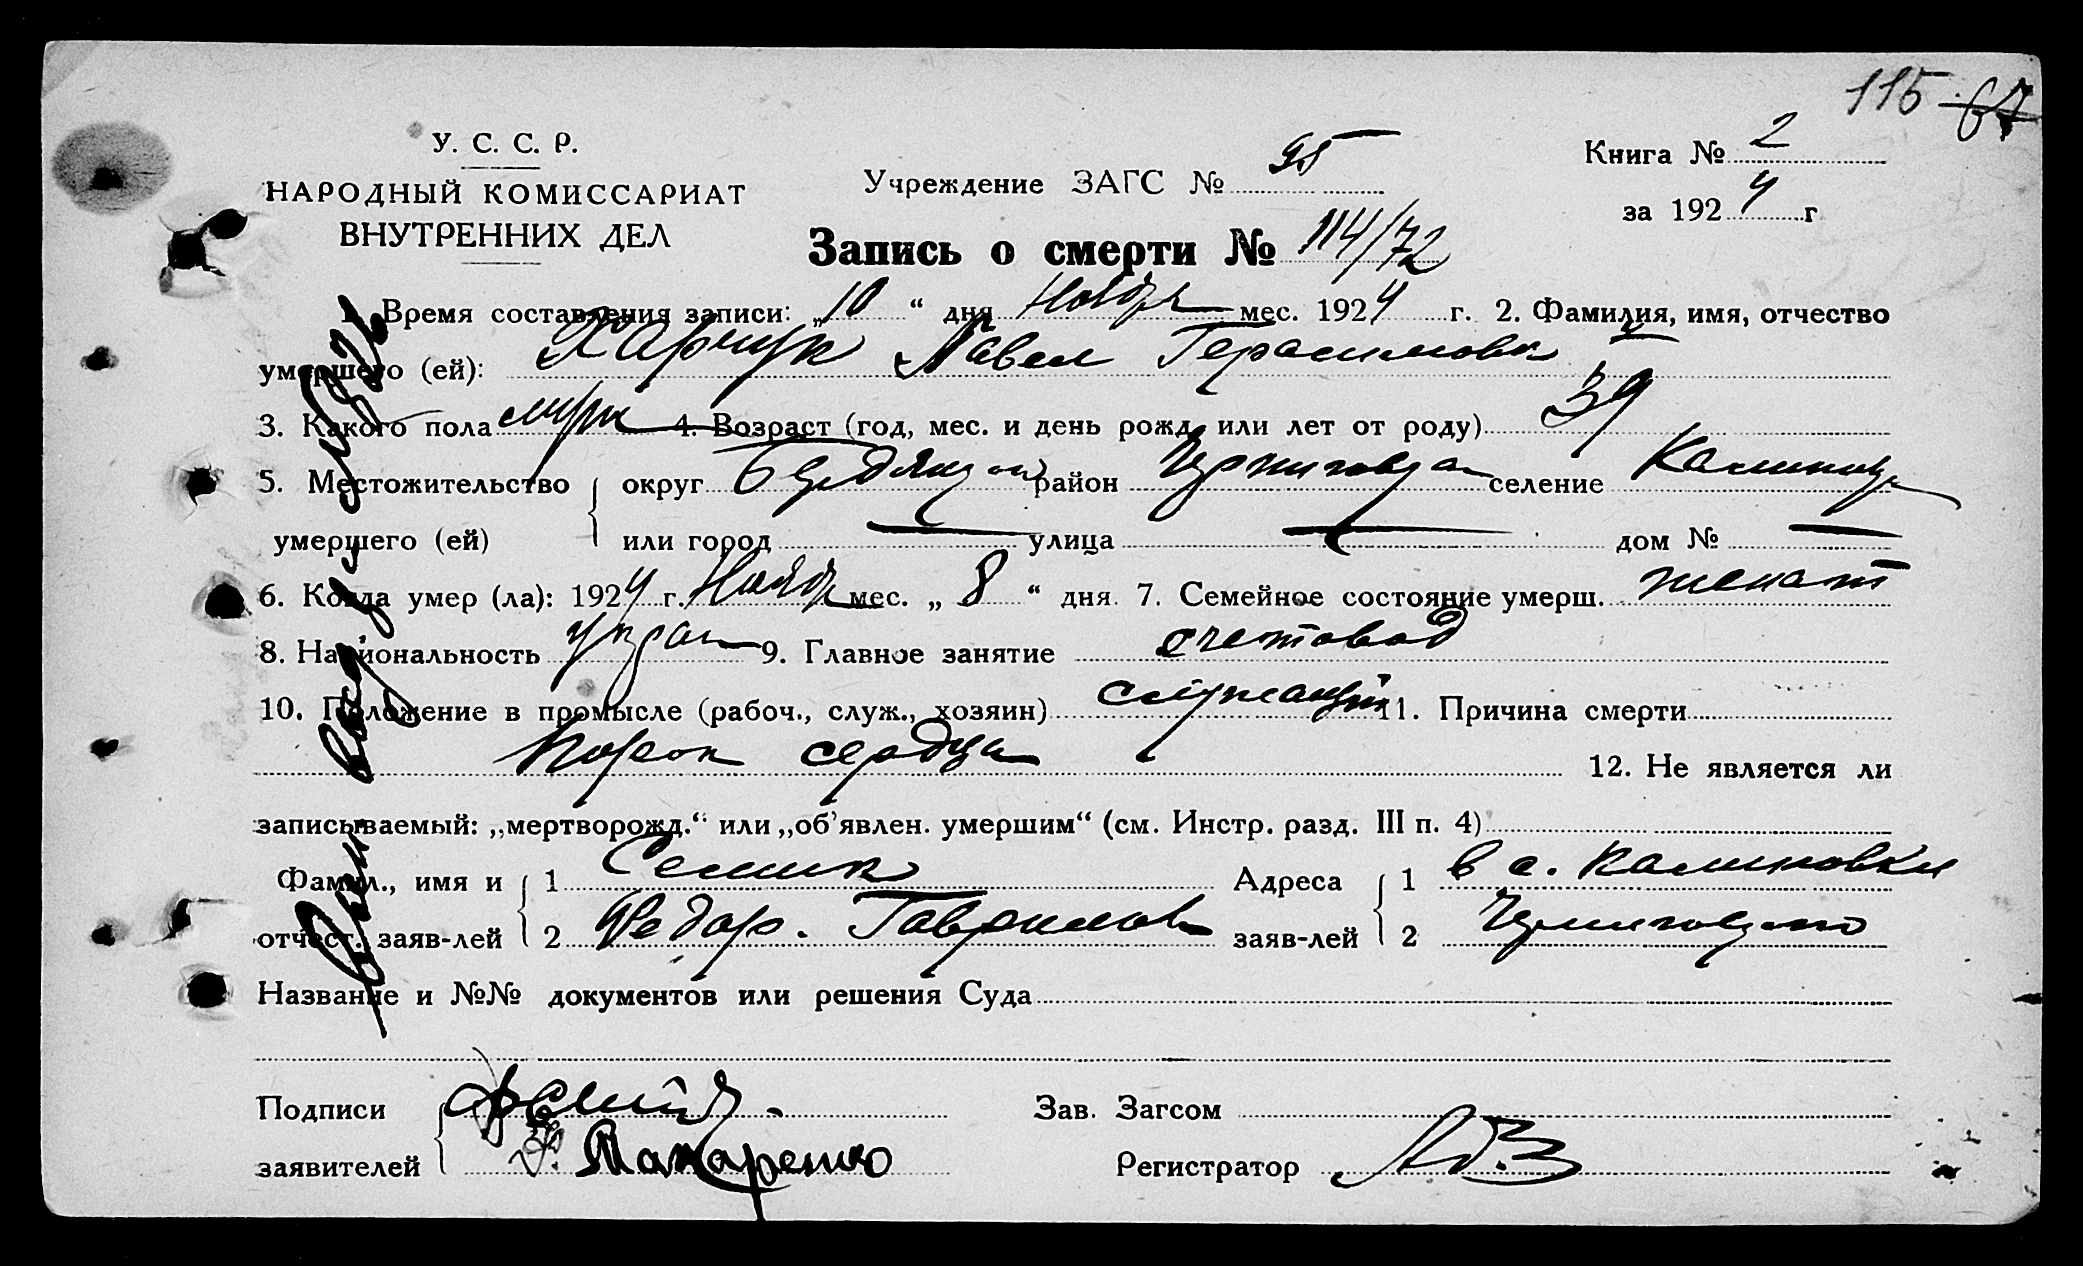 115 67
У. С. С. Р.
НАРОДНЫЙ КОМИССАРИАТ
ВНУТРЕННИХ ДЕЛ
Учреждение ЗАГС № 95
Книга № 2
за 1924 г
Запись о смерти № 114/72
1. Время составления записи: „10“ дня Ноябр мес. 1924 г. 2. Фамилия, имя, отчество
умершего (ей): Харчук Павел Герасимович
3. Какого пола муж 4. Возраст (год, мес. и день рожд. или лет от роду) 39
5. Местожительство округ район селение
умершего (ей) или город — улица — дом № —
6. Когда умер (ла): 1924 г. Ноябр мес. „8“ дня 7. Семейное состояние умерш. женат
8. Национальность 9. Главное занятие счетовод
10. Положение в промысле (рабоч., служ., хозяин) служащий 11. Причина смерти
Порок сердца 12. Не является ли
записываемый: „мертворожд.“ или „об’явлен. умершим“ (см. Инстр. разд. III п. 4)
Фамил., имя и 1 Семик Адреса 1 в с. Калиновки
отчест. заяв-лей 2 Федор. Гаврилов заяв-лей 2
Название и №№ документов или решения Суда
Подписи Зав. Загсом
заявителей Макаренко Регистратор